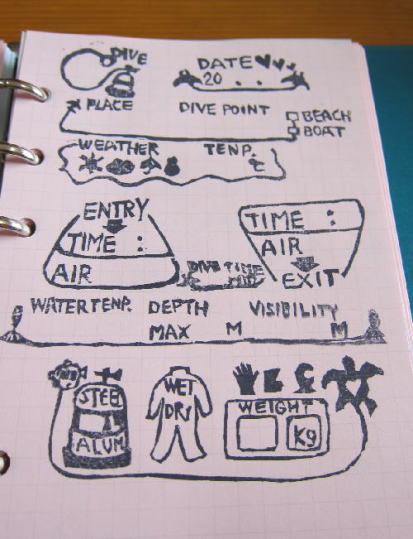 DIVE
DATE
20 . .
PLACE DIVE POINT
BEACH
BOAT
WEATHER TENP.
℃
ENTRY
TIME :
AIR
TIME :
AIR
EXIT
DIVE TIME
WATER TENP. DEPTH VISIBILITY
MAX M M
STEEL
ALUM
WET
DRY
WEIGHT
Kg